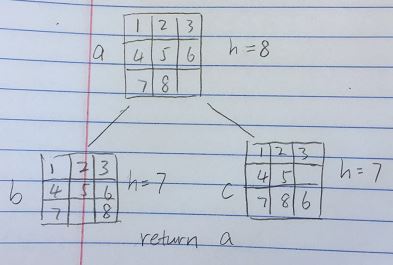 a
1 2 3
4 5 6
7 8
h=8
b
1 2 3
4 5 6
7 8
h=7
c
1 2 3
4 5
7 8 6
h=7
return a